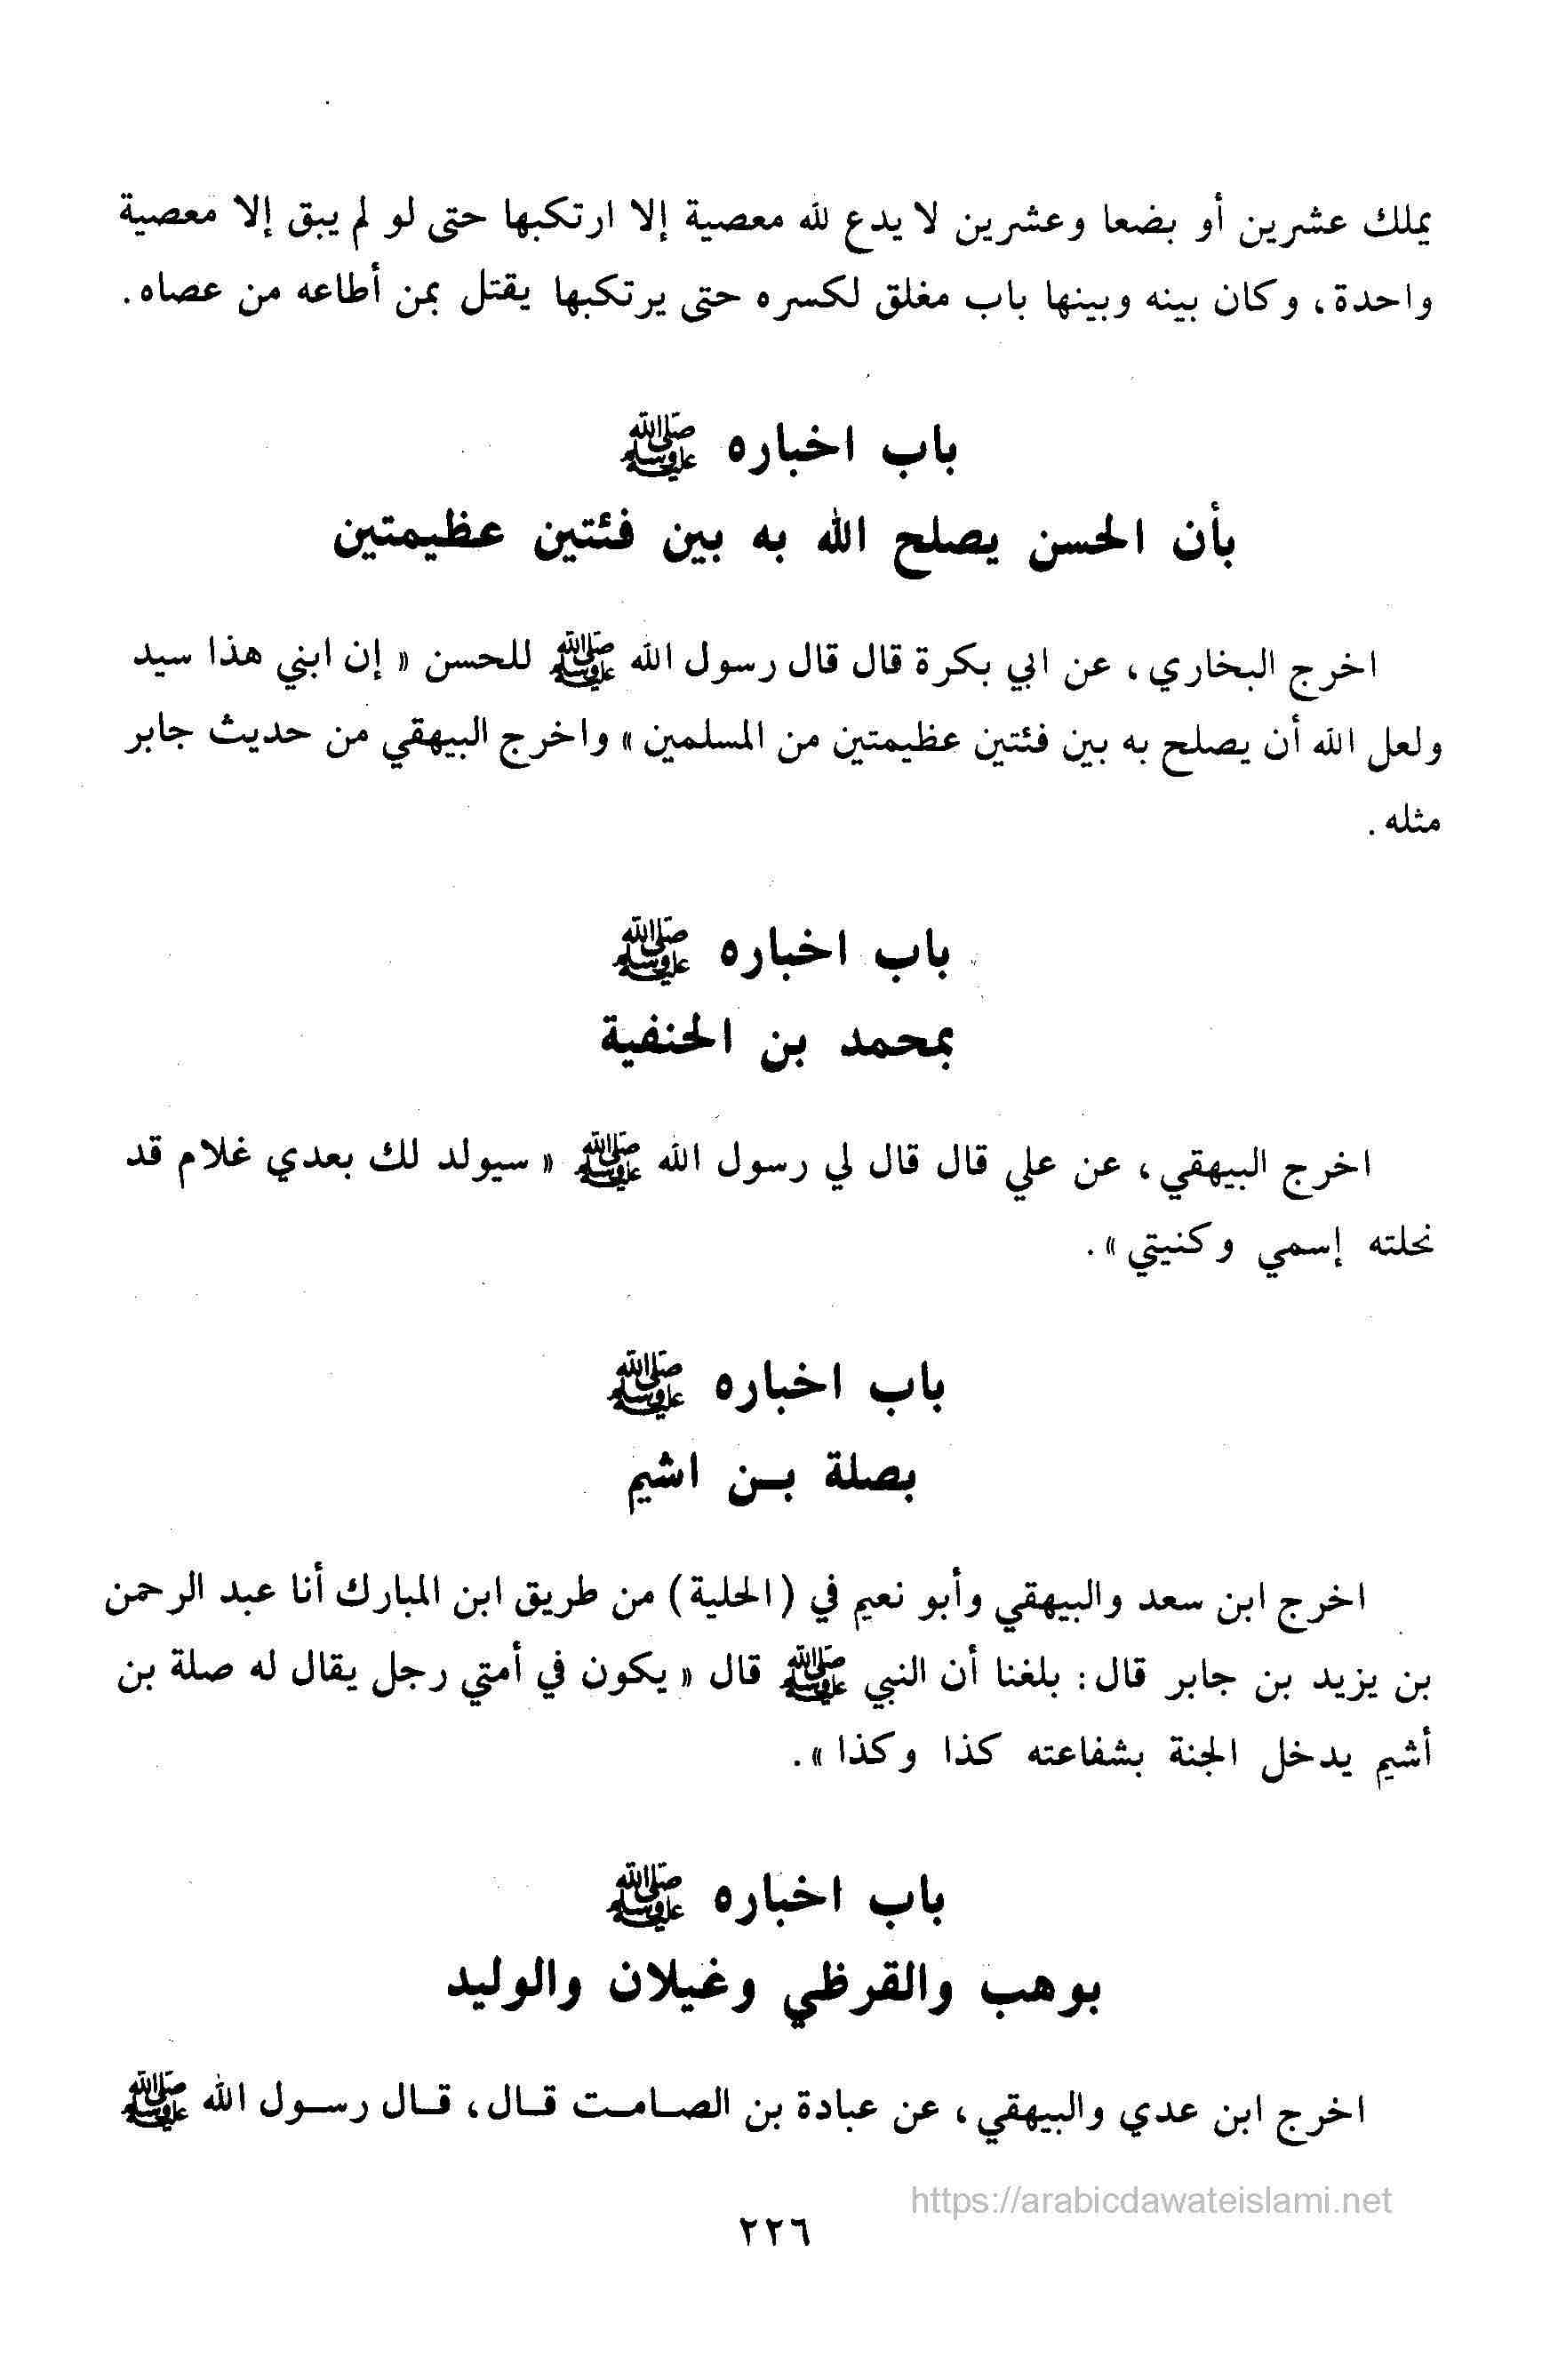 يملك عشرين أو بضعا وعشرين لا يدع لله معصية إلا ارتكبها حتى لو لم يبق إلا معصية
واحدة، وكان بينه وبينها باب مغلق لكسره حتى يرتكبها يقتل بمن أطاعه من عصاه.
باب اخباره ﷺ
بأن الحسن يصلح الله به بين فئتين عظيمتين
اخرج البخاري، عن ابي بكرة قال قال رسول الله ﷺ للحسن « إن ابني هذا سيد
ولعل الله أن يصلح به بين فئتين عظيمتين من المسلمين » واخرج البيهقي من حديث جابر
مثله.
باب اخباره ﷺ
بمحمد بن الحنفية
اخرج البيهقي، عن علي قال قال لي رسول الله ﷺ « سيولد لك بعدي غلام قد
نحلته إسمي وكنيتي ».
باب اخباره ﷺ
بصلة بـن اشيم
اخرج ابن سعد والبيهقي وأبو نعيم في (الحلية) من طريق ابن المبارك أنا عبد الرحمن
بن يزيد بن جابر قال: بلغنا أن النبي ﷺ قال « يكون في أمتي رجل يقال له صلة بن
أشيم يدخل الجنة بشفاعته كذا وكذا ».
باب اخباره ﷺ
بوهب والقرظي وغيلان والوليد
اخرج ابن عدي والبيهقي، عن عبادة بن الصـامـت قـال، قـال رسـول الله ﷺ
https://arabicdawateislami.net
٢٢٦